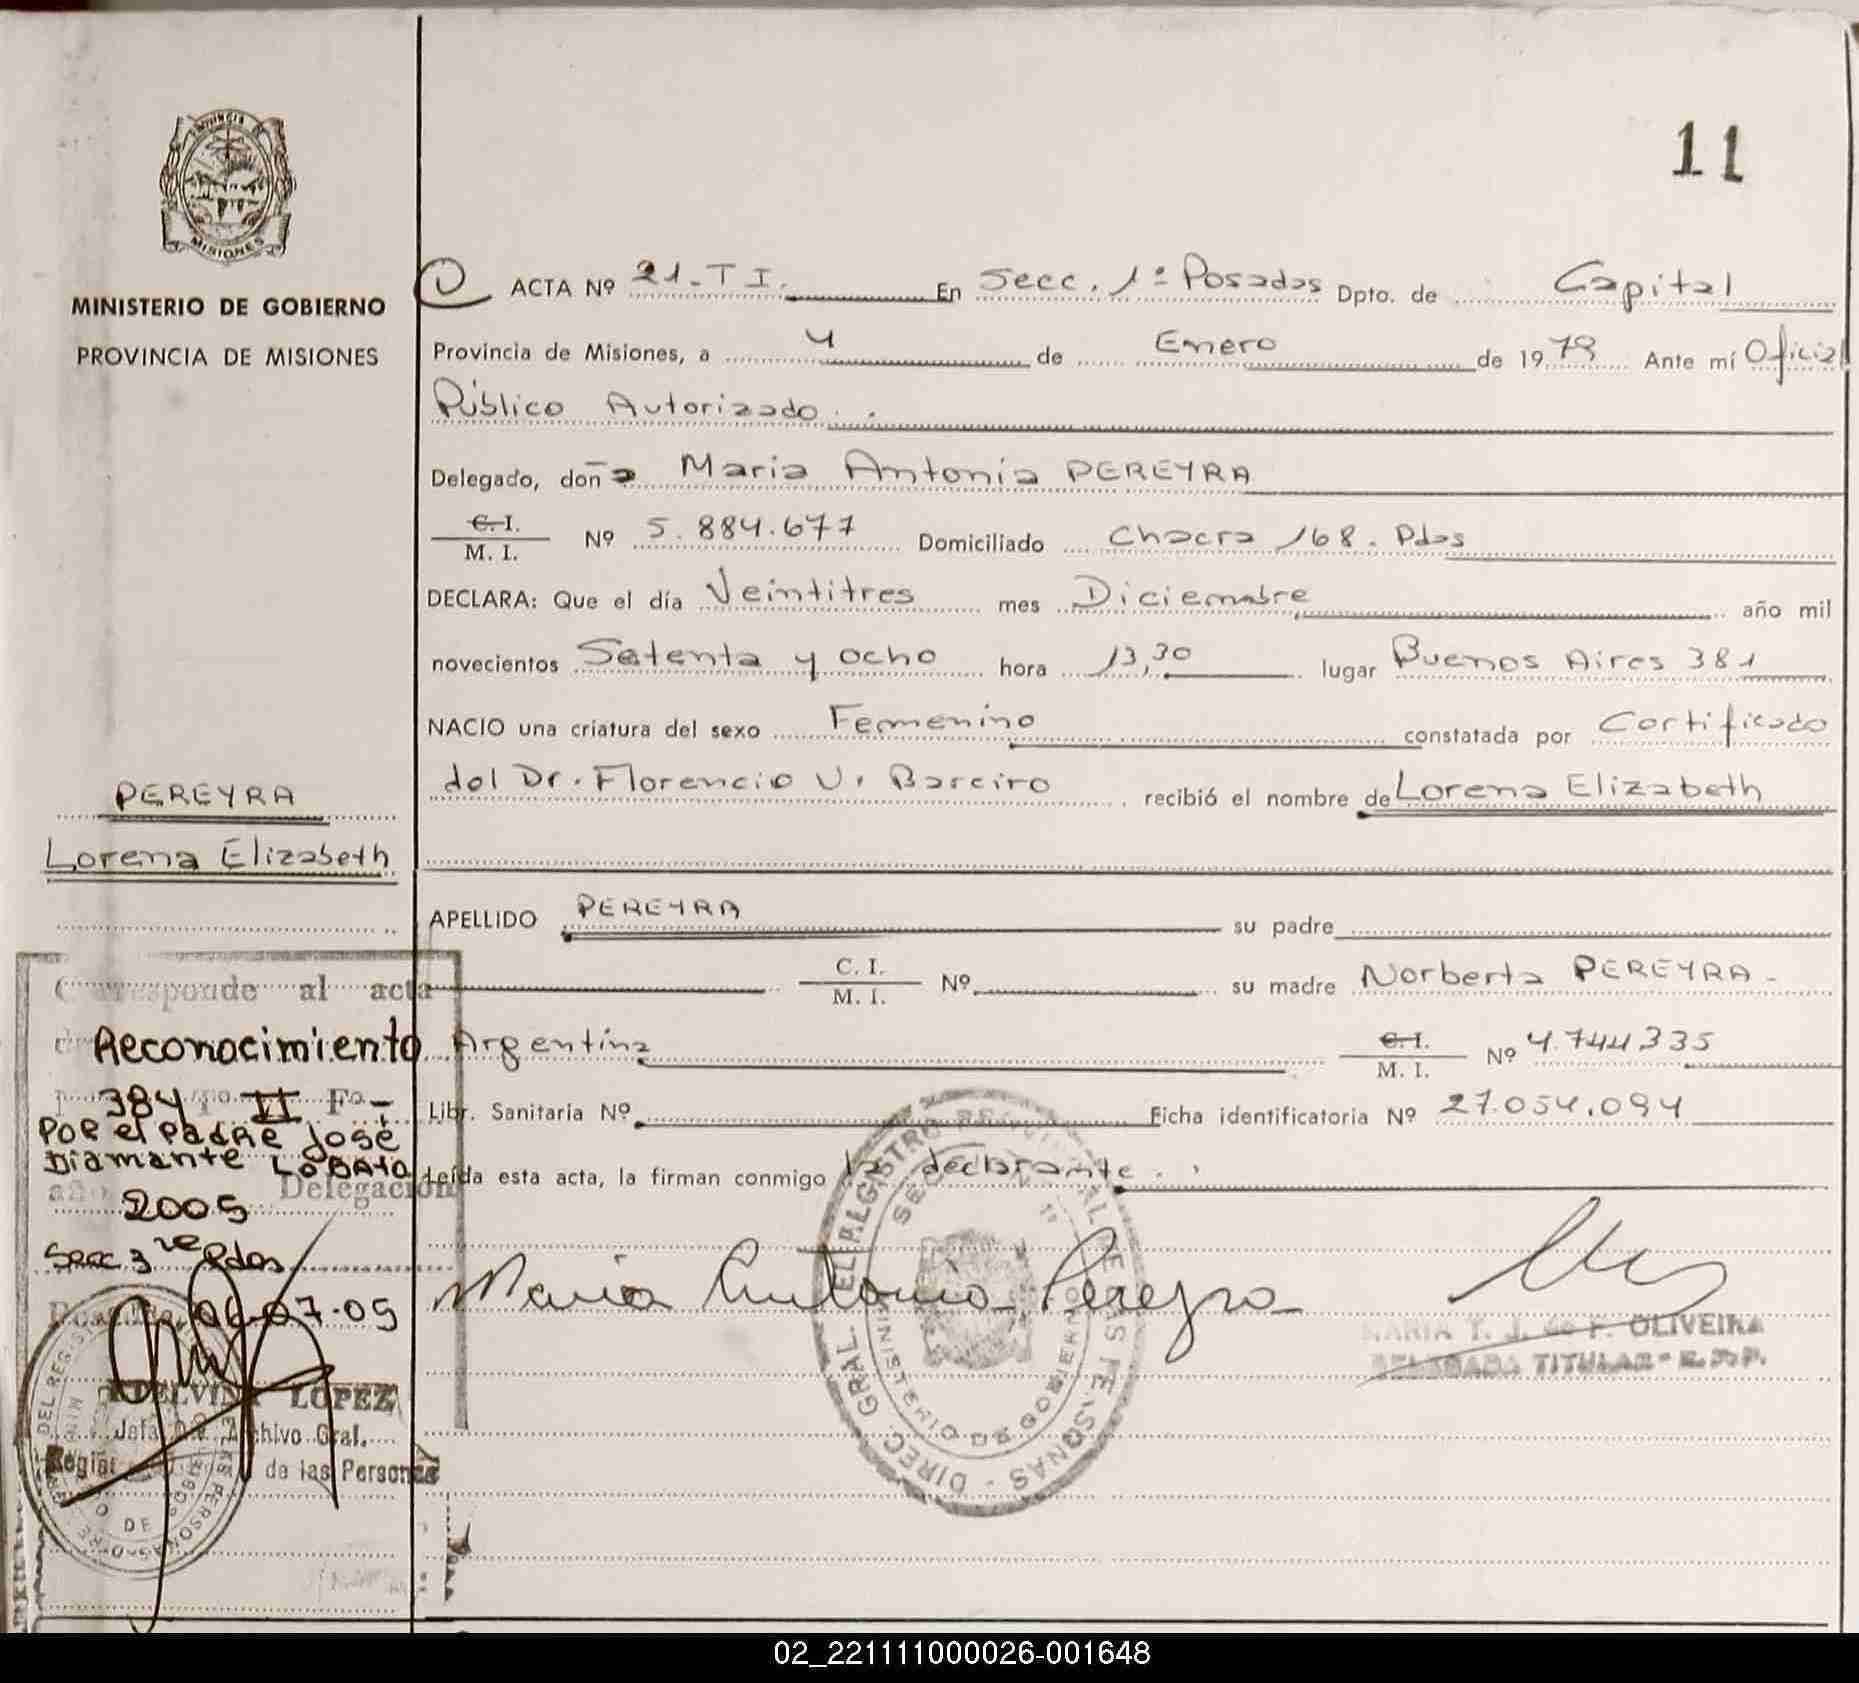 11
PROVINCIA DE
MISIONES
MINISTERIO DE GOBIERNO
PROVINCIA DE MISIONES
ACTA Nº 21-T I. En Secc. 1ª Posadas Dpto. de Capital
Provincia de Misiones, a 4 de Enero de 1979 Ante mí Oficial
Público Autorizado.
Delegado, doña Maria Antonia PEREYRA
C. I.
M. I. Nº 5.884.677 Domiciliado Chacra 168. Pdas
DECLARA: Que el día Veintitres mes Diciembre año mil
novecientos Setenta y ocho hora 13,30 lugar Buenos Aires 381
NACIO una criatura del sexo Femenino constatada por Certificado
del Dr. Florencio V. Bareiro recibió el nombre de Lorena Elizabeth
APELLIDO PEREYRA su padre
C. I.
M. I. Nº su madre Norberta PEREYRA-
Argentina C. I.
M. I. Nº 4.744.335
Libr. Sanitaria Nº Ficha identificatoria Nº 27.054.094
Leída esta acta, la firman conmigo la declarante.
Maria Antonia Pereyra
MARIA T. J. de F. OLIVEIRA
DELEGADA TITULAR - R.P.P.
PEREYRA
Lorena Elizabeth
Corresponde al acta
de Reconocimiento
384 Tº II Fº -
Por el Padre José
Diamante LOBATO
año 2005 Delegación
Secc 3 ra Pdas
Posadas, 06-07-05
ADELVINA LOPEZ
Jefa Archivo Gral.
de las Personas
02_221111000026-001648